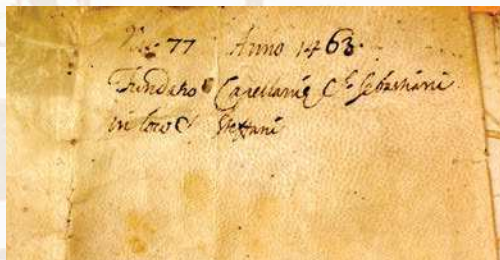 No. 77 Anno 1463.
Fundatio Capellaniæ S. Sebastiani
in loco S. Steffani